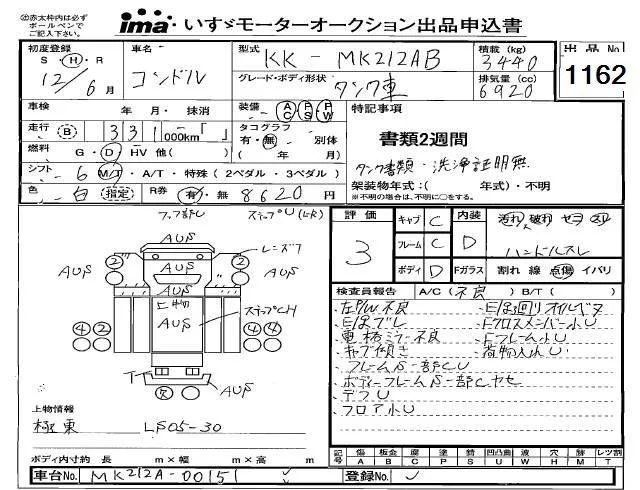 ima いすゞモーターオークション出品申込書
㊟赤太枠内は必ず
ボールペンで
ご記入下さい。
初度登録
S・H・R
12/6月
車名
コンドル
型式
KK-MK212AB
グレード・ボディ形状
タンク車
積載 (kg)
3440
排気量 (cc)
6920
出品No
1162
車検 年 月・ 抹消
装備 AC PS PW
走行 B 331,000km「 」
タコグラフ
有・無 別体
( 年 月)
燃料 G・D・HV 他( )
シフト 6 M/T・A/T・特殊(2ペダル・3ペダル)
色 白 指定 R券 有・無 8620円
特記事項
書類2週間
タンク書類・洗浄証明無
架装物年式:( 年式)・不明
※不明の場合は、不明に○をする。
評価
3
キャブ C
フレーム C
ボディ D
内装 D
Fガラス
汚れ 破れ セヨ スリ
ハンドルスレ
割れ 線 点傷 イバリ
検査員報告 A/C(不良) B/T( )
左P/W不良
電格ミラー不良
キャブ傾き
フレームS一部CU
ボディーフレームS一部Cヤセ
デフU
フロア小U
Fクロスメンバー小U
Fフレーム小U
荷物入小U
AUS
AUS
AUS
AUS
上物
AUS
AUS
AUS
ステップU(LR)
レンズワ
ステップCH
2
2
2
2
4
4
上物情報
極東 LF05-30
ボディ内寸約 長 m×幅 m×高 m
記号
傷 A
板金 B
腐 C
塗 P
錆 S
凹凸曲 U
波 W
穴 H
欠 M
レツ割 T
車台No. MK212A-00151
登録No.